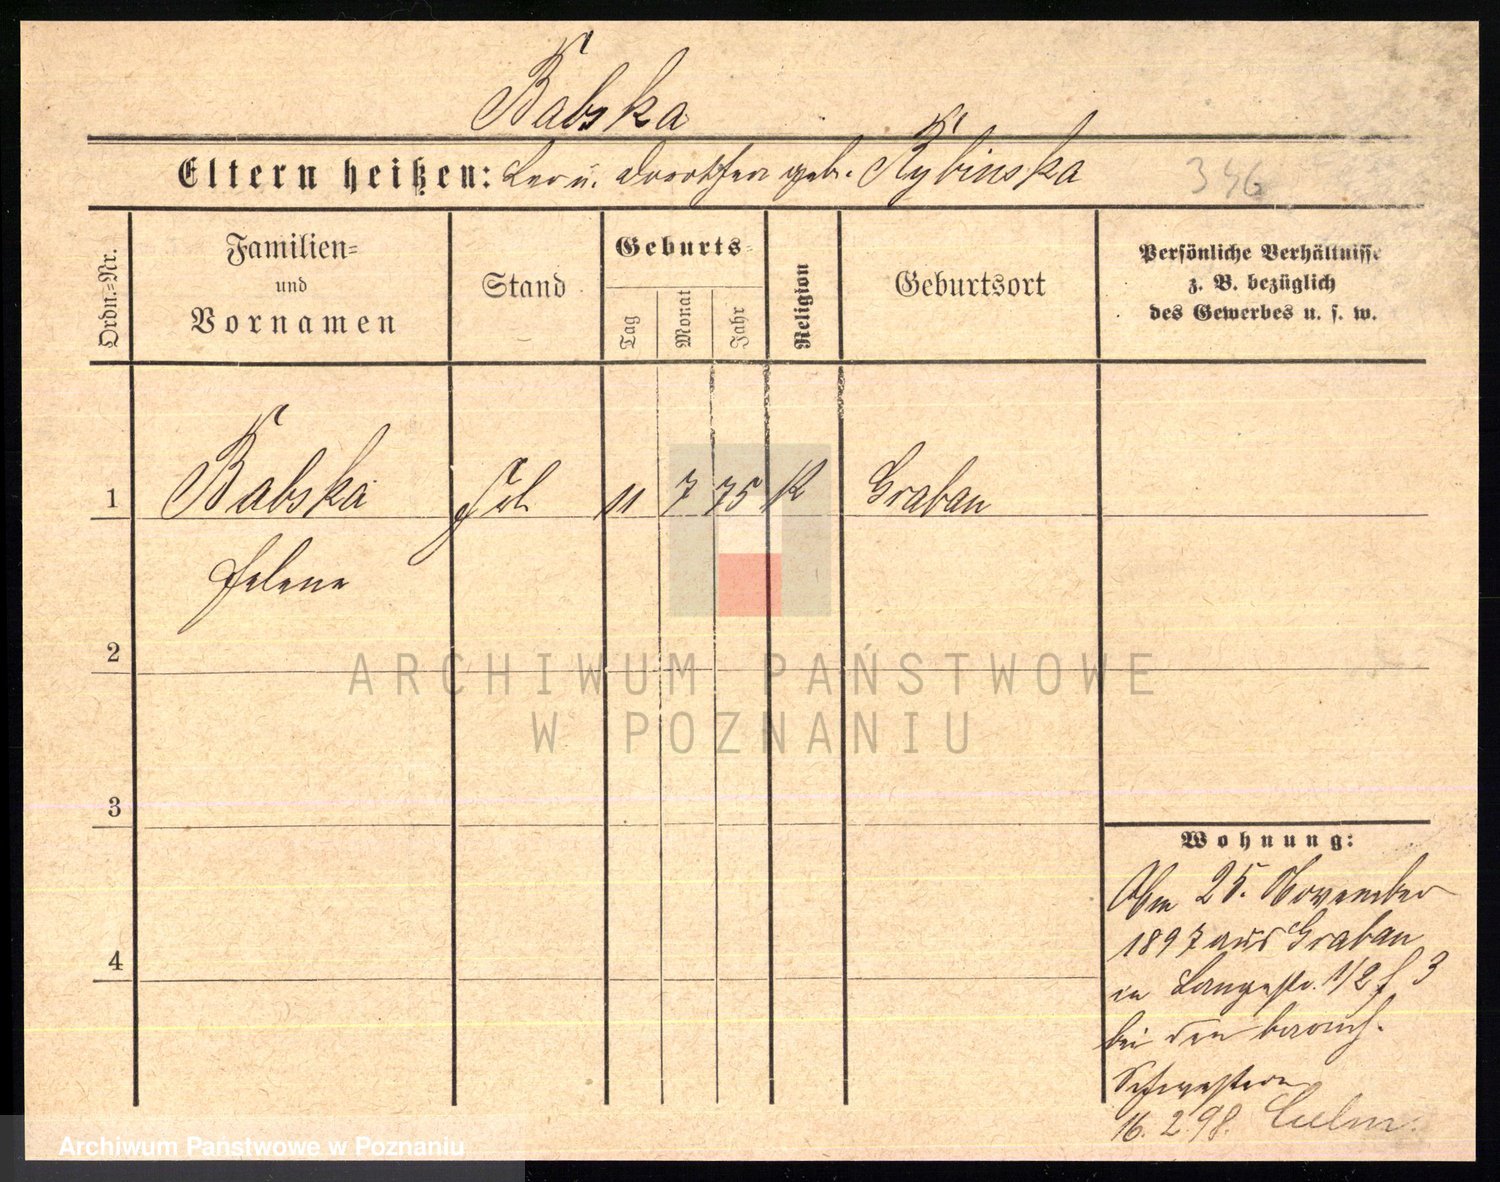 Babska
Eltern heißen: Leo u. Dorothea geb. Rybinska
346
Ordn.-Nr.
Familien-
und
Vornamen
Stand
Geburts-
Tag
Monat
Jahr
Religion
Geburtsort
Persönliche Verhältnisse
z. B. bezüglich
des Gewerbes u. s. w.
1
Babska
11 7 75 K
Grabau
Helene
2
ARCHIWUM PAŃSTWOWE
W POZNANIU
3
4
Wohnung:
Am 25. November
1897 aus Grabau
in Langestr. 1/2 3
bei den barmh.
Schwestern
16. 2. 98. Culm.
Archiwum Państwowe w Poznaniu